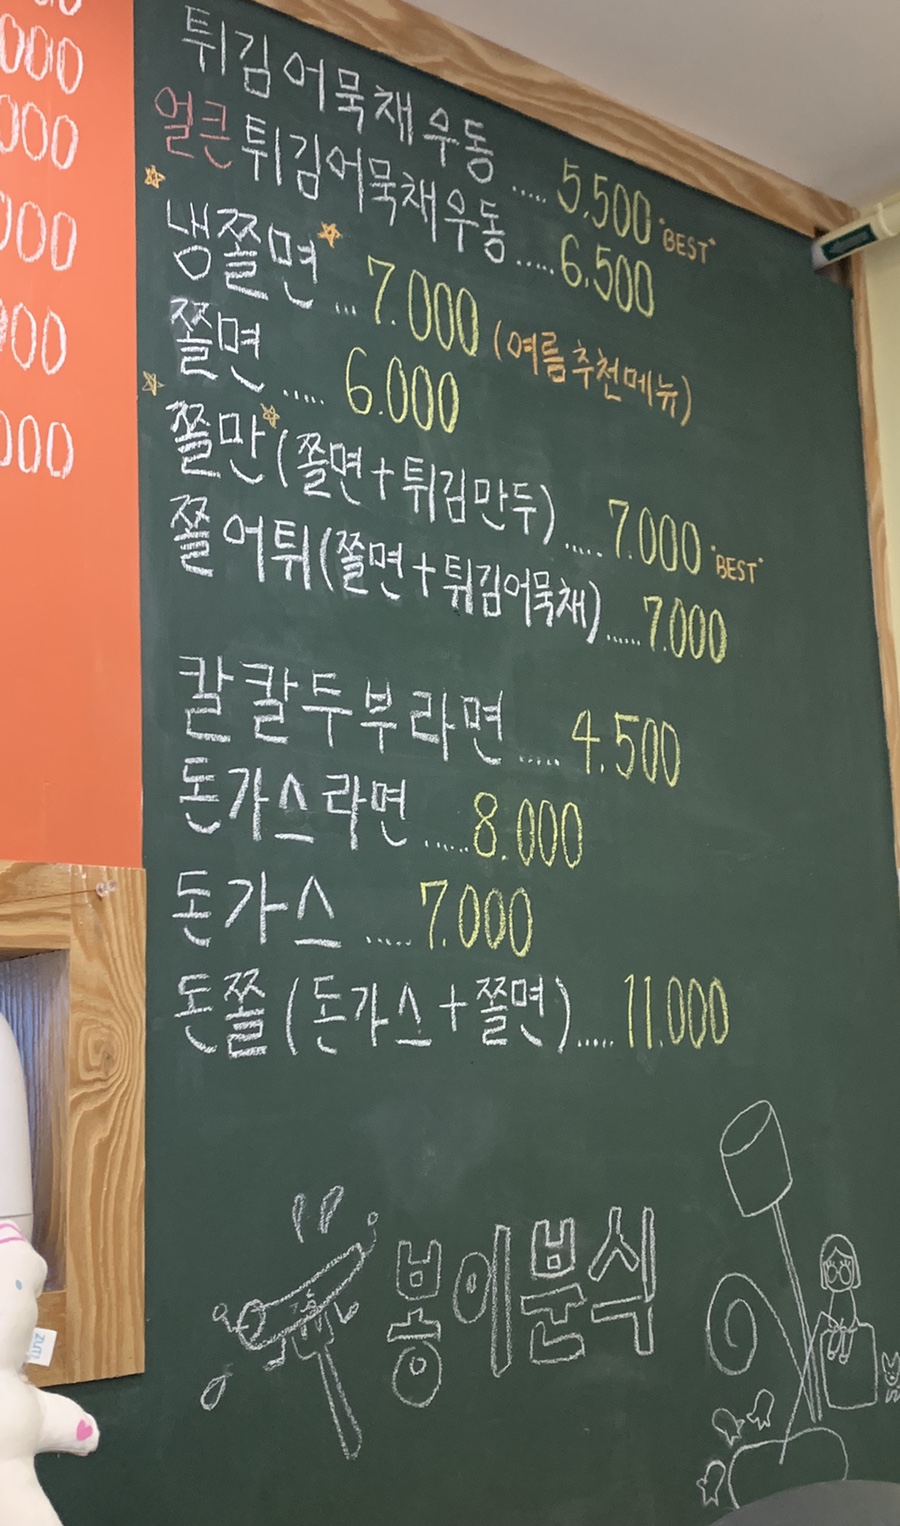 000
000
000
000
000
튀김어묵채우동 ..... 5,500 "BEST"
얼큰튀김어묵채우동 ..... 6,500
냉쫄면 ... 7.000 (여름추천메뉴)
쫄면 ..... 6.000
쫄만(쫄면+튀김만두) ..... 7.000 "BEST"
쫄어튀(쫄면+튀김어묵채) ..... 7.000
칼칼두부라면 ..... 4.500
돈가스라면 ..... 8.000
돈가스 ..... 7.000
돈쫄(돈가스+쫄면) ..... 11.000
봉이분식